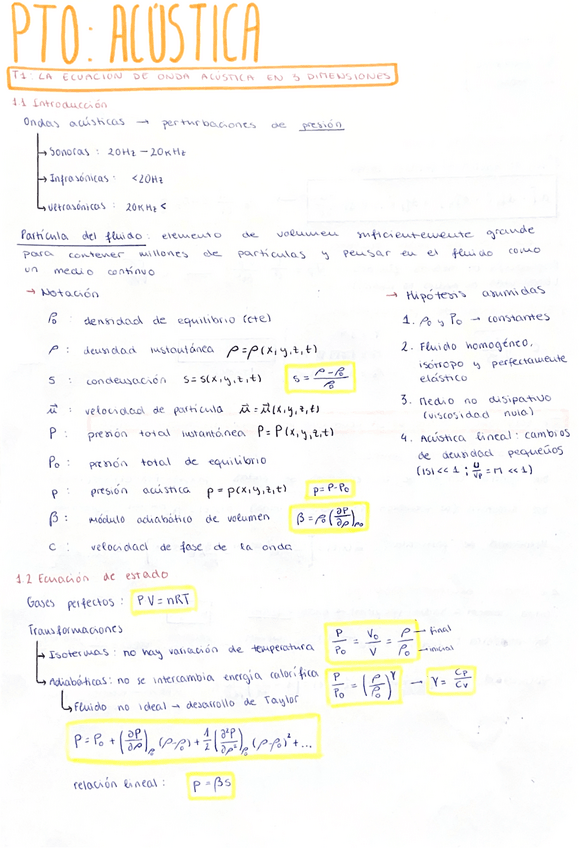 PTO: ACÚSTICA
T1: LA ECUACIÓN DE ONDA ACÚSTICA EN 3 DIMENSIONES
1.1 Introducción
Ondas acústicas → perturbaciones de presión
→ Sonoras : 20Hz - 20KHz
→ Infrasónicas : <20Hz
→ Ultrasónicas : 20KHz <
Partícula del fluido : elemento de volumen suficientemente grande
para contener millones de partículas y pensar en el fluido como
un medio continuo
→ Notación
ρ₀ : densidad de equilibrio (cte)
ρ : densidad instantánea ρ=ρ(x,y,z,t)
s : condensación s=s(x,y,z,t) s = (ρ-ρ₀)/ρ₀
u⃗ : velocidad de partícula u⃗=u⃗(x,y,z,t)
P : presión total instantánea P=P(x,y,z,t)
P₀ : presión total de equilibrio
p : presión acústica p=p(x,y,z,t) p=P-P₀
β : módulo adiabático de volumen β=ρ₀(∂P/∂ρ)ρ₀
c : velocidad de fase de la onda
→ Hipótesis asumidas
1. ρ₀ y P₀ → constantes
2. Fluido homogéneo,
isótropo y perfectamente
elástico
3. Medio no disipativo
(viscosidad nula)
4. Acústica lineal : cambios
de densidad pequeños
(|s| << 1 ; u/vp = M << 1)
1.2 Ecuación de estado
Gases perfectos : PV=nRT
Transformaciones
→ Isotermas : no hay variación de temperatura P/P₀ = V₀/V = ρ/ρ₀ — final — inicial
→ Adiabáticas : no se intercambia energía calorífica P/P₀ = (ρ/ρ₀)^γ → γ = Cp/Cv
→ Fluido no ideal → desarrollo de Taylor
P = P₀ + (∂P/∂ρ)ρ₀ (ρ-ρ₀) + 1/2 (∂²P/∂ρ²)ρ₀ (ρ-ρ₀)² + ...
relación lineal : p = βs